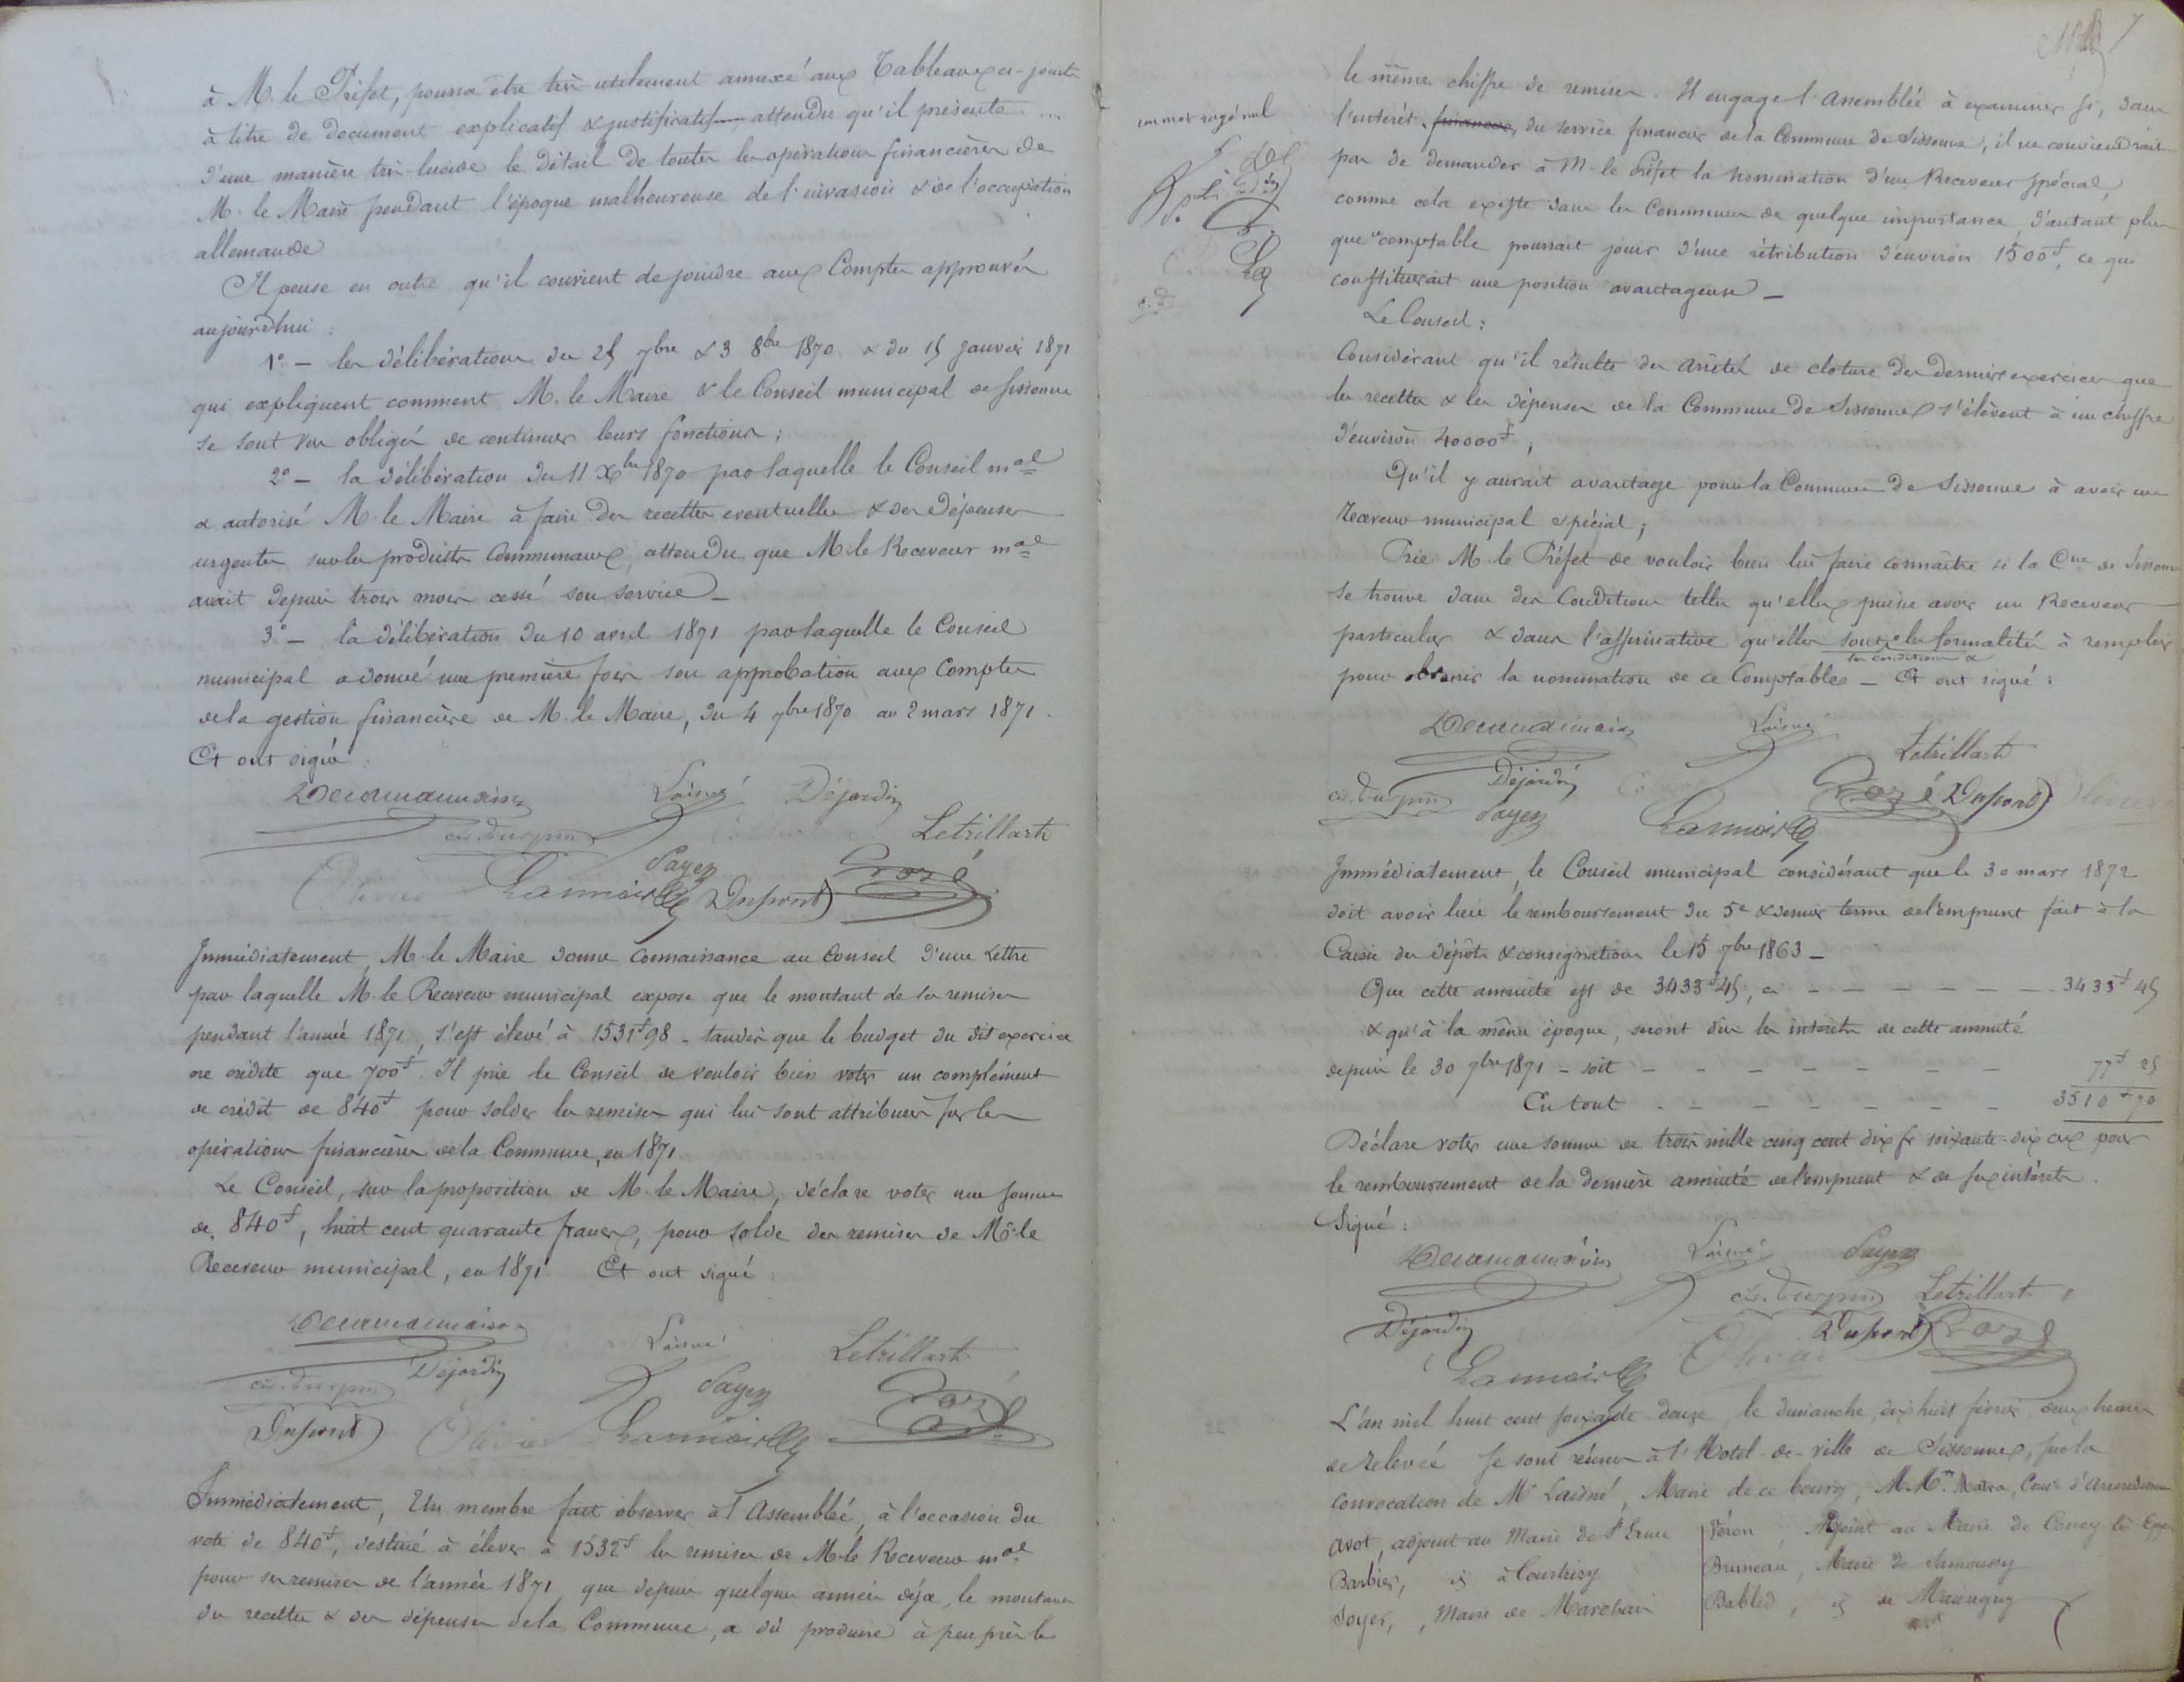 à M. le Préfet, pourra être très utilement annexé aux Tableaux ci-joints
à titre de document explicatif & justificatif, attendu qu'il présente ...
d'une manière très-lucide le détail de toutes les opérations financières de
M. le Maire pendant l'époque malheureuse de l'invasion & de l'occupation
allemande
Il pense en outre qu'il convient de joindre aux Comptes approuvés
aujourd'hui :
1° - les délibérations des 25 7bre & 3 8bre 1870 & du 15 janvier 1871
qui expliquent comment M. le Maire & le Conseil municipal de Sissonne
se sont vus obligés de continuer leurs fonctions ;
2° - la délibération du 11 Xbre 1870 par laquelle le Conseil mal
a autorisé M. le Maire à faire des recettes eventuelles & des Dépenses
urgentes sur les produits Communaux, attendu que M. le Receveur mal
avait depuis trois mois cessé son service -
3° - la délibération du 10 avril 1871 par laquelle le Conseil
municipal a donné une première fois son approbation aux Comptes
de la gestion financière de M. le Maire, du 4 7bre 1870 au 2 mars 1871.
Et ont signé :
Laisné Déjardin
Letrillart
Payen
Olivier Lannois Dupont Rozé
Immédiatement, M. le Maire donne Connaissance au Conseil d'une Lettre
par laquelle M. le Receveur municipal expose que le montant de ses remises
pendant l'année 1871, s'est élevé à 1531f 98 - tandis que le budget du dit exercice
ne crédite que 700f. Il prie le Conseil de vouloir bien voter un complément
de crédit de 840f pour solder les remises qui lui sont attribuées sur les
opérations financières de la Commune, en 1871
Le Conseil, sur la proposition de M. le Maire, déclare voter une somme
de 840f, huit cent quarante francs, pour solde des remises de Mr le
Receveur municipal, en 1871. Et ont signé :
Laisné Letrillart
Déjardin Payen
Dupont Olivier Lannois Rozé
Immédiatement, Un membre fait observer à l'Assemblée, à l'occasion du
vote de 840f, destiné à élever à 1532f les remises de M. le Receveur mal
pour ses remises de l'année 1871, que depuis quelques années déjà, le montant
des recettes & des dépenses de la Commune, a dû produire à peu près le
7
un mot rayé nul
le même chiffre de remises. Il engage l'Assemblée à examiner si, dans
l'intérêt, financier, du service financier de la Commune de Sissonne, il ne conviendrait
pas de demander à M. le Préfet la nomination d'un Receveur spécial,
comme cela existe dans les Communes de quelque importance, d'autant plus
que ce comptable pourrait jouir d'une rétribution d'environ 1500f, ce qui
constituerait une position avantageuse -
Le Conseil :
Considérant qu'il résulte des arrêtés de cloture des derniers exercices que
les recettes & les dépenses de la Commune de Sissonne s'élèvent à un chiffre
d'environ 40000f ;
Qu'il y aurait avantage pour la Commune de Sissonne à avoir un
Receveur municipal spécial ;
Prie M. le Préfet de vouloir bien lui faire connaître si la Cne de Sissonne
se trouve dans des Conditions telles qu'elle puisse avoir un Receveur
particulier & dans l'affirmative qu'elles sont les formalités à remplir
les conditions &
pour obtenir la nomination de ce Comptable - Et ont signé :
Laisné
Letrillart
Déjardin Rozé Dupont Olivier
Payen Lannois
Immédiatement, le Conseil municipal considérant que le 30 mars 1872
doit avoir lieu le remboursement du 5e & dernier terme de l'emprunt fait à la
Caisse des dépôts & consignations le 15 7bre 1863 -
Que cette annuité est de 3433f 45, ci - - - - - - 3433f 45
& qu'à la même époque, seront dûs les intérêts de cette annuité
depuis le 30 7bre 1871 - soit - - - - - - - 77f 25
En tout - - - - - - - 3510f 70
Déclare voter une somme de trois mille cinq cent dix fr soixante-dix cs pour
le remboursement de la dernière annuité de l'emprunt & de ses intérêts.
Signé :
Laisné Payen
Letrillart
Déjardin Dupont Rozé
Lannois Olivier
L'an mil huit cent soixante-douze, le dimanche, dix huit février, deux heures
de relevée se sont réunis à l'Hotel-de-ville de Sissonne, sur la
convocation de Mr Laisné, Maire de ce bourg, M.Mrs
Avot, adjoint au Maire de St Erme
Véron Adjoint au Maire de Coucy-les-Eppes
Barbier, id à Courtrizy
Bruneau, Maire de Samoussy
Soyer, Maire de Marchais
Babled, id de Mauregny